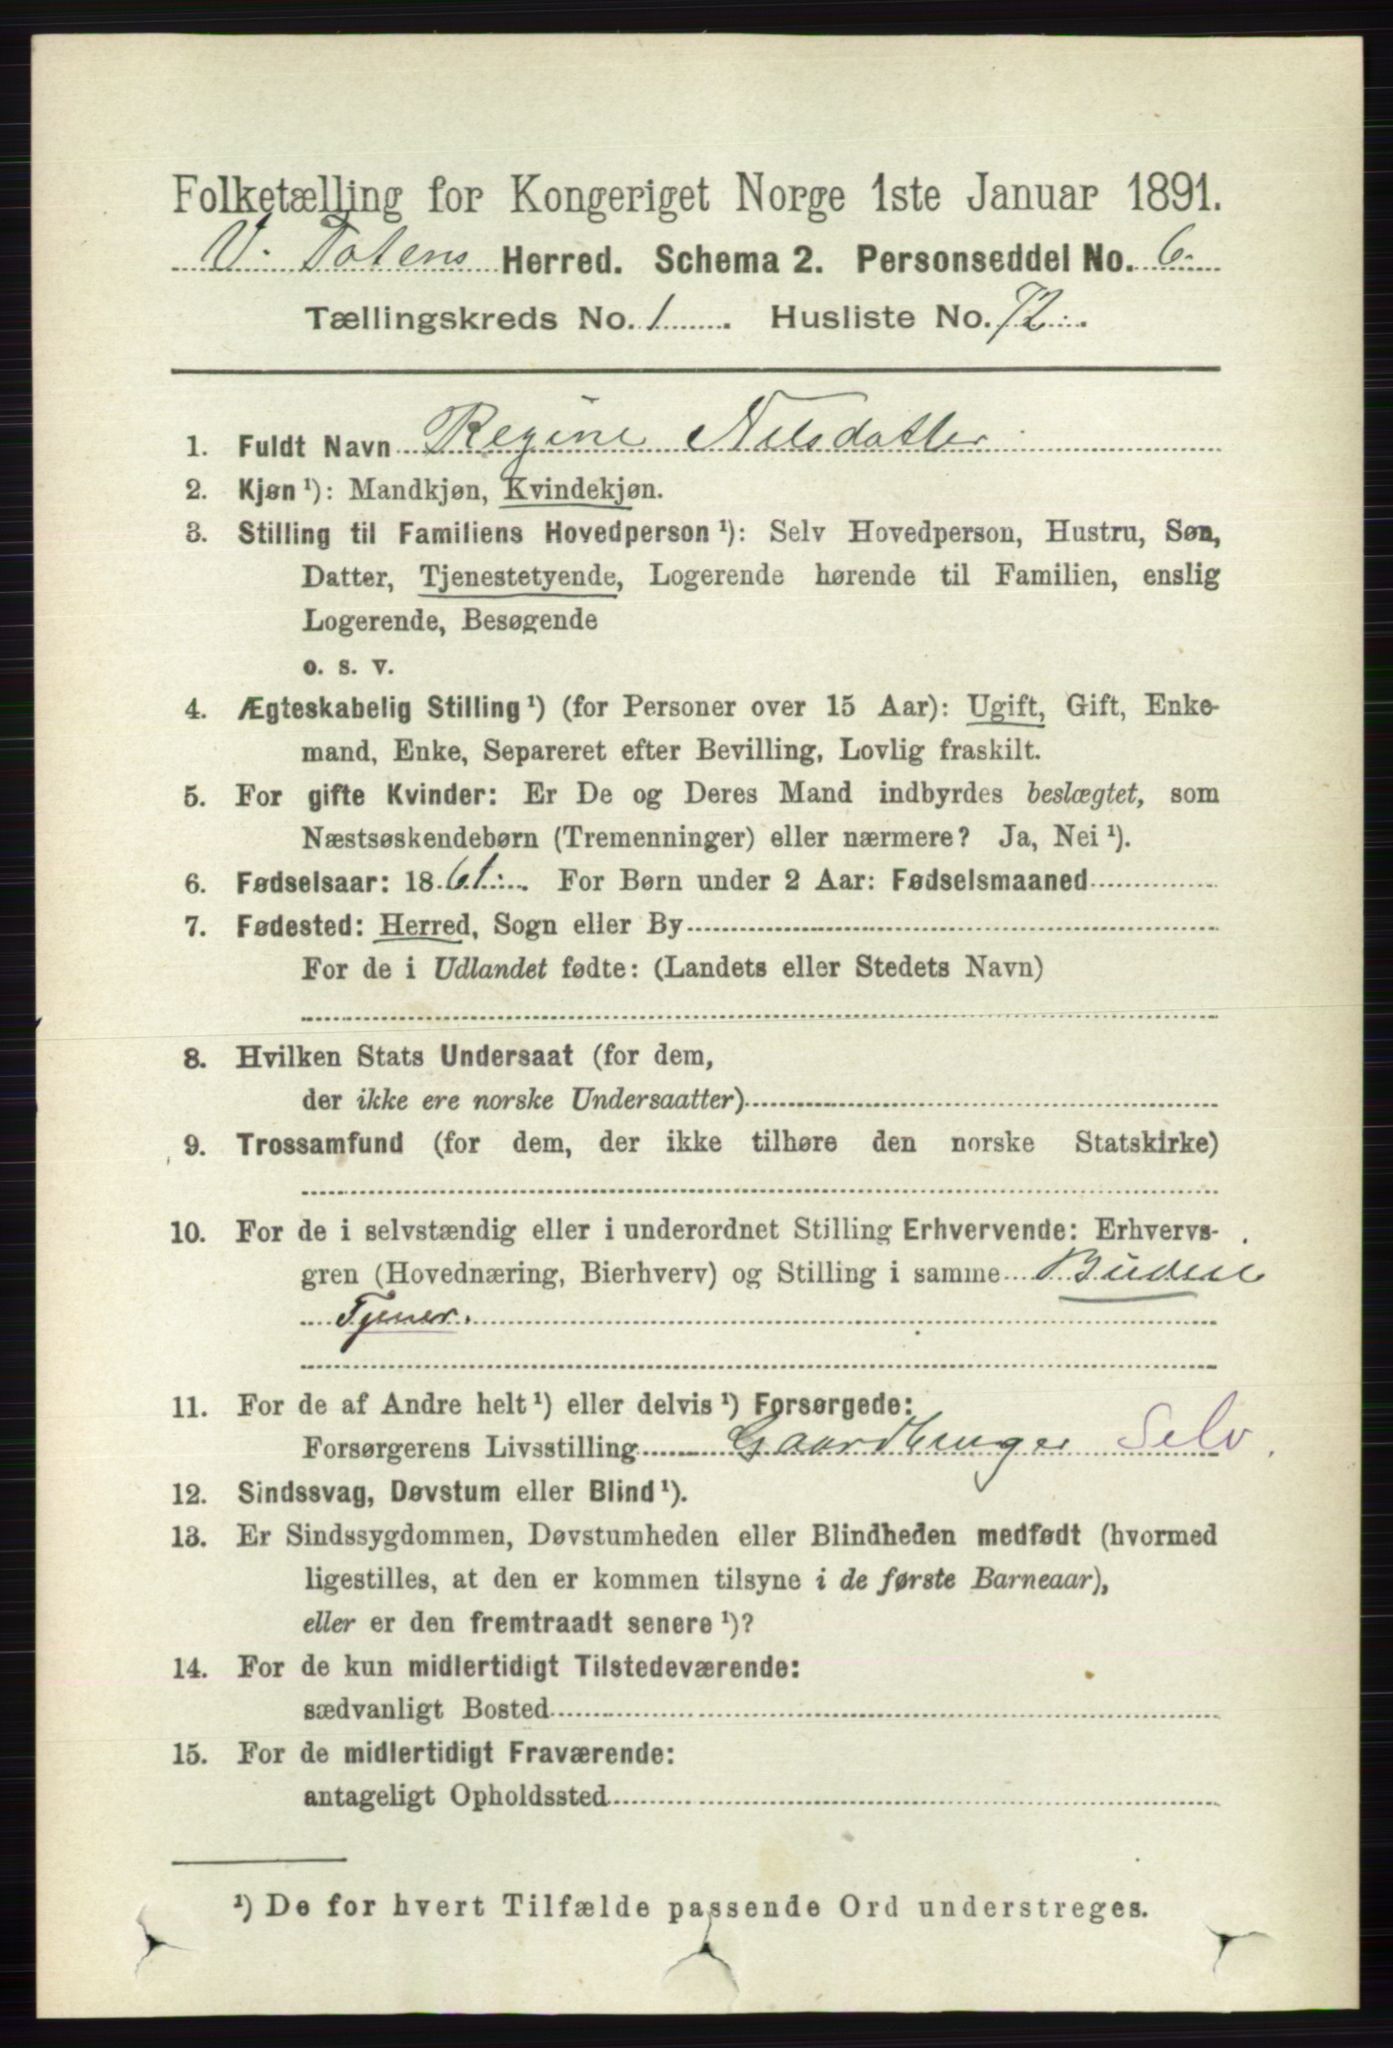 Folketælling for Kongeriget Norge 1ste Januar 1891.
V. Totens Herred. Schema 2. Personseddel No. 6
Tællingskreds No. 1. Husliste No. 72.
1. Fuldt Navn Regine Nilsdatter
2. Kjøn ¹): Mandkjøn, Kvindekjøn.
3. Stilling til Familiens Hovedperson ¹): Selv Hovedperson, Hustru, Søn,
Datter, Tjenestetyende, Logerende hørende til Familien, enslig
Logerende, Besøgende
o. s. v.
4. Ægteskabelig Stilling ¹) (for Personer over 15 Aar): Ugift, Gift, Enke-
mand, Enke, Separeret efter Bevilling, Lovlig fraskilt.
5. For gifte Kvinder: Er De og Deres Mand indbyrdes beslægtet, som
Næstsøskendebørn (Tremenninger) eller nærmere? Ja, Nei ¹).
6. Fødselsaar: 1861. For Børn under 2 Aar: Fødselsmaaned
7. Fødested: Herred, Sogn eller By
For de i Udlandet fødte: (Landets eller Stedets Navn)
8. Hvilken Stats Undersaat (for dem,
der ikke ere norske Undersaatter)
9. Trossamfund (for dem, der ikke tilhøre den norske Statskirke)
10. For de i selvstændig eller i underordnet Stilling Erhvervende: Erhvervs-
gren (Hovednæring, Bierhverv) og Stilling i samme Budeie
Tjener.
11. For de af Andre helt ¹) eller delvis ¹) Forsørgede:
Forsørgerens Livsstilling Gaardbruger Selv
12. Sindssvag, Døvstum eller Blind ¹).
13. Er Sindssygdommen, Døvstumheden eller Blindheden medfødt (hvormed
ligestilles, at den er kommen tilsyne i de første Barneaar),
eller er den fremtraadt senere ¹)?
14. For de kun midlertidigt Tilstedeværende:
sædvanligt Bosted
15. For de midlertidigt Fraværende:
antageligt Opholdssted
¹) De for hvert Tilfælde passende Ord understreges.